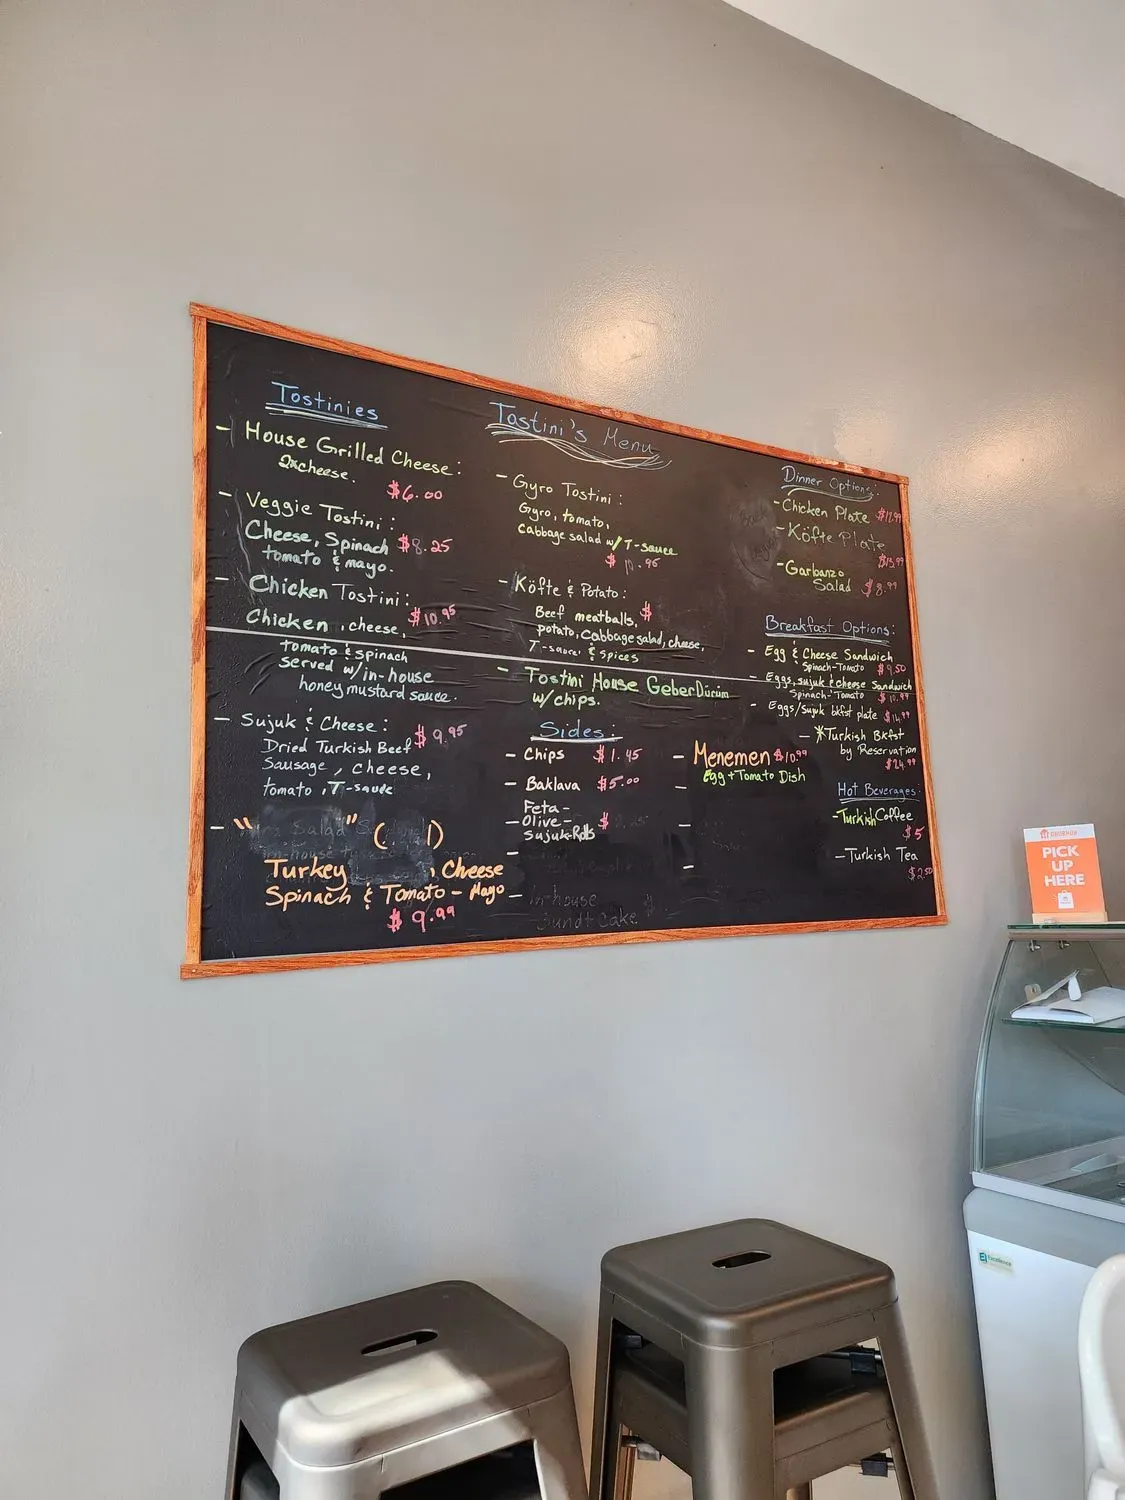 Tostinies
- House Grilled Cheese:
2xcheese.
$6.00
- Veggie Tostini:
Cheese, Spinach $8.25
tomato & mayo.
- Chicken Tostini:
Chicken, cheese, $10.95
tomato & spinach
served w/in-house
honey mustard sauce.
- Sujuk & Cheese:
Dried Turkish Beef $9.95
Sausage, cheese,
tomato, T-sauce
Turkey, Cheese
Spinach & Tomato - Mayo
$9.99
Tostini's Menu
- Gyro Tostini:
Gyro, tomato,
cabbage salad w/ T-sauce
$10.95
- Köfte & Potato:
Beef meatballs, $
potato, cabbage salad, cheese,
T-sauce, & spices
- Tostini House Geber Dürüm
w/chips.
Sides:
- Chips $1.45
- Baklava $5.00
Feta-
- Olive- $
Sujuk-Rolls
- In-house
Bundt Cake
- Menemen $10.99
Egg + Tomato Dish
Dinner Options:
- Chicken Plate $12.99
- Köfte Plate
$13.99
- Garbanzo
Salad $8.99
Breakfast Options:
- Egg & Cheese Sandwich
Spinach-Tomato $9.50
- Eggs, sujuk & cheese Sandwich
Spinach-Tomato $10.99
- Eggs/Sujuk bkfst plate $14.99
- *Turkish Bkfst
by Reservation
$24.99
Hot Beverages:
- Turkish Coffee
$5
- Turkish Tea
$2.50
GRUBHUB
PICK
UP
HERE
Excellence